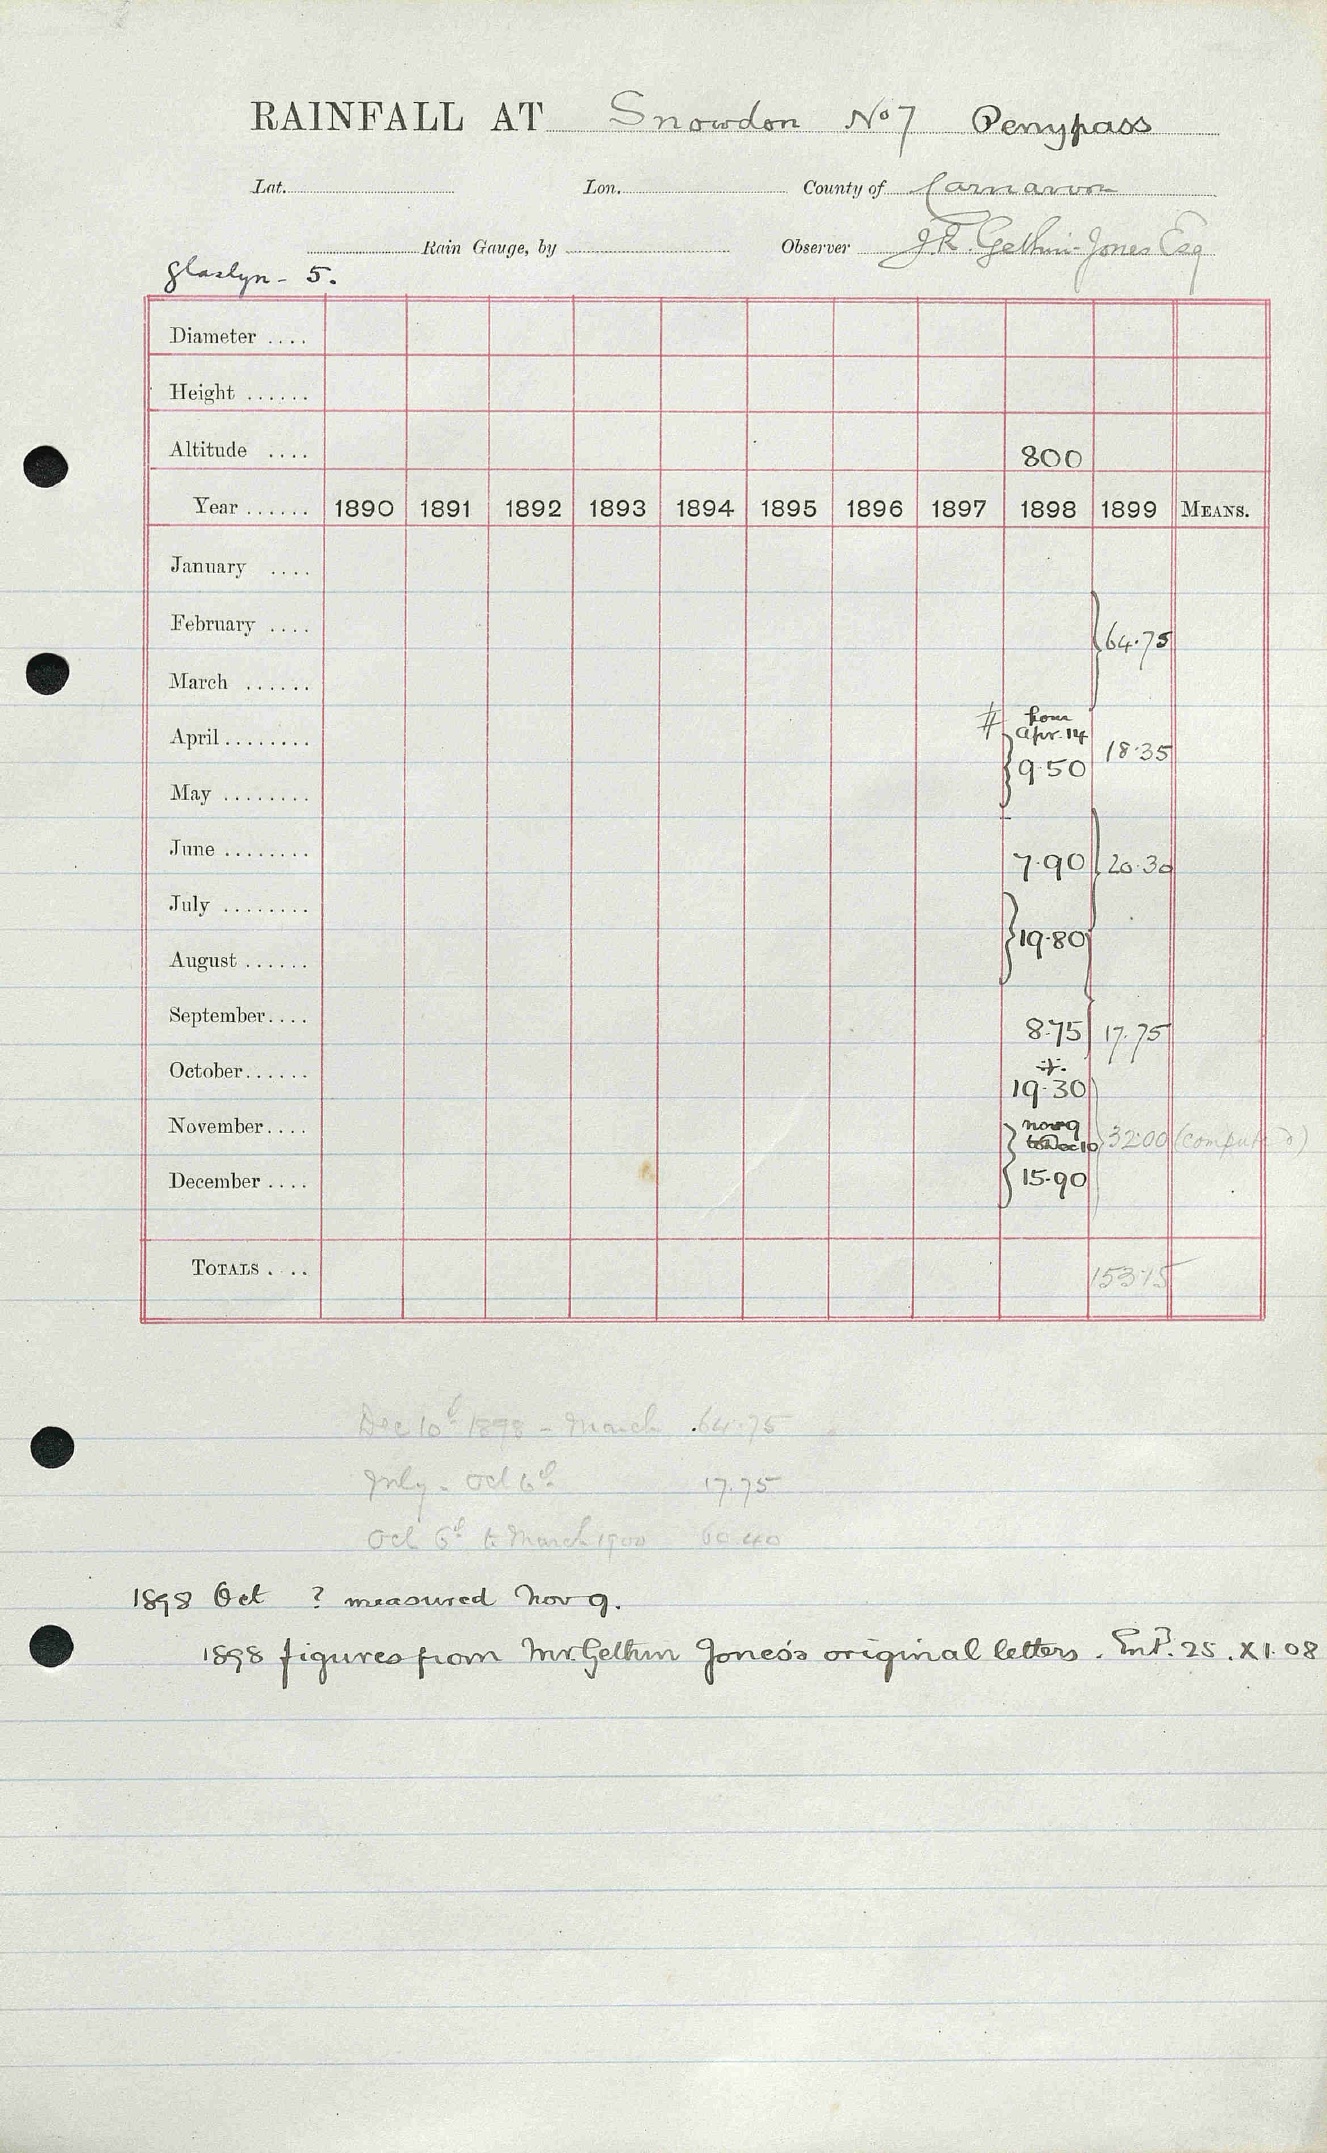 RAINFALL AT Snowdon No 7 Penypass
Lat. Lon. County of Carnarvon
Rain Gauge, by Observer J.R. Gethin-Jones Esq
Glaslyn - 5.
Diameter ....
Height ......
Altitude .... 800
Year ...... 1890 1891 1892 1893 1894 1895 1896 1897 1898 1899 MEANS.
January ....
February .... 64.75
March ......
# from
April ........ Apr. 14 18.35
9.50
May ........
June ........ 7.90 20.30
July ........
19.80
August ......
September.... 8.75 17.75
October......
19.30
November.... Nov 9
to Dec 10 32.00 (computed)
December .... 15.90
TOTALS .... 153.15
Dec 10th 1898 - March 64.75
July - Oct 6th 17.75
Oct 6th to March 1900 60.40
1898 Oct ? measured Nov 9.
1898 figures from Mr. Gethin Jones's original letters. Entd. 25. XI. 08